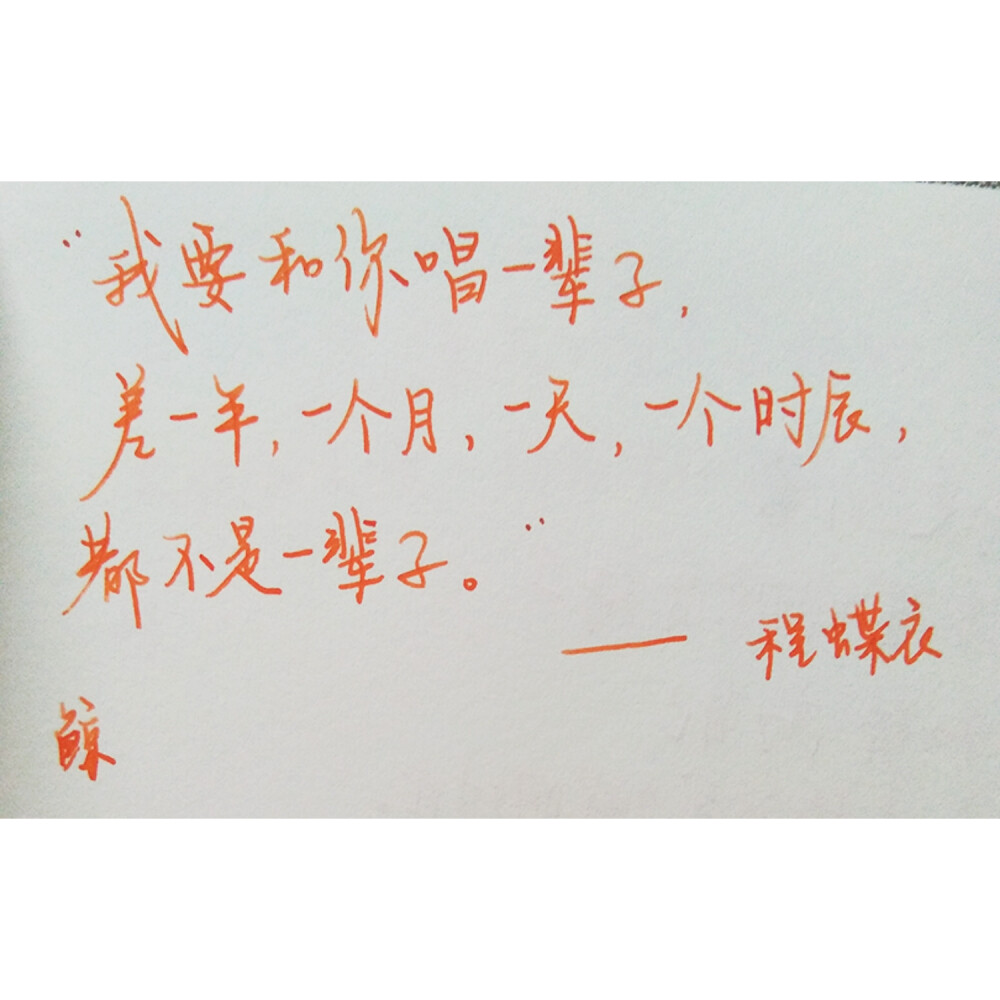 “我要和你唱一辈子,
差一年,一个月,一天,一个时辰,
都不是一辈子。”
——程蝶衣
鲸